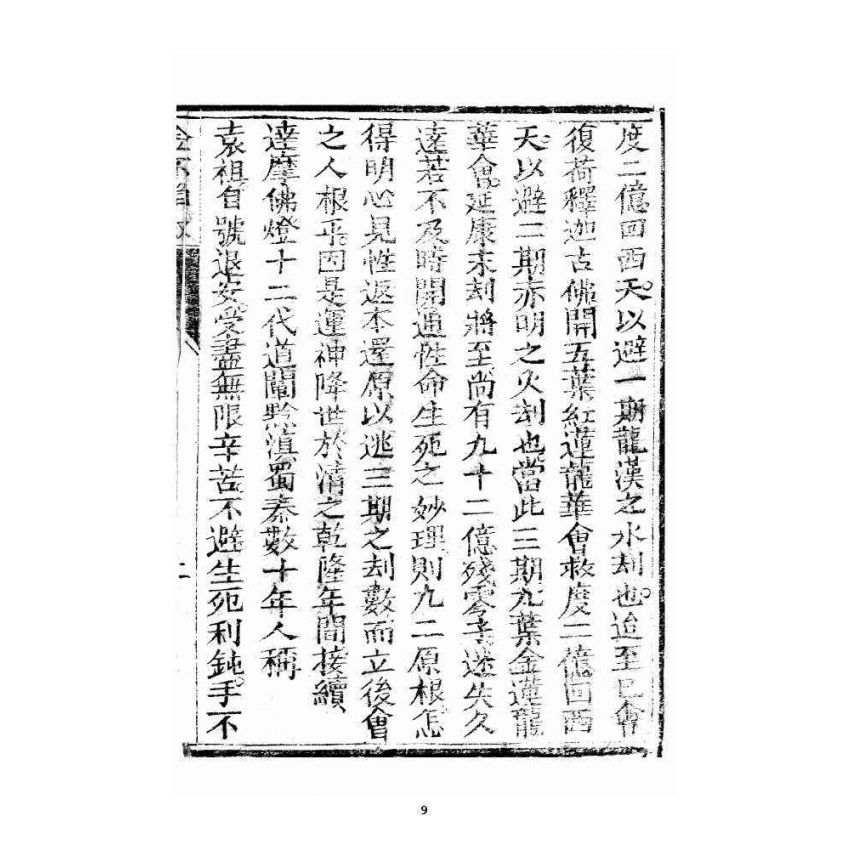 度二億回西天以避一期龍漢之水刼也迨至巳會
復荷釋迦古佛開五葉紅蓮龍華會救度二億回西
天以避二期赤明之火刼也當此三期九葉金蓮龍
華會延康末刼將至尚有九十二億殘零 迷失久
遠若不及時開通性命生死之妙理則九二原根怎
得明心見性返本還原以逃三期之刼數而立後會
之人根乎因是運神降世於清之乾隆年間接續
達摩佛燈十二代道闡黔滇蜀秦數十年人稱
袁祖自號退安受盡無限辛苦不避生死利鈍手不
二
9